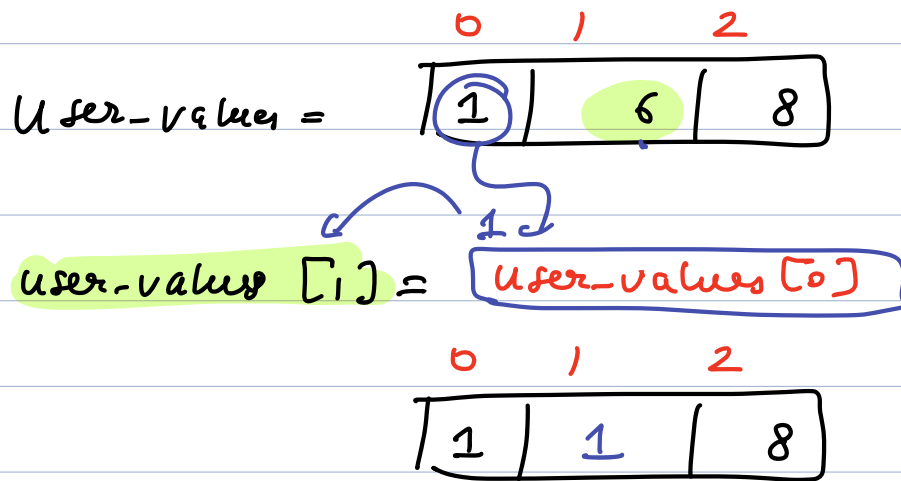 0 1 2
User_values = 1 6 8
1
user_values [1] = user_values [0]
0 1 2
1 1 8